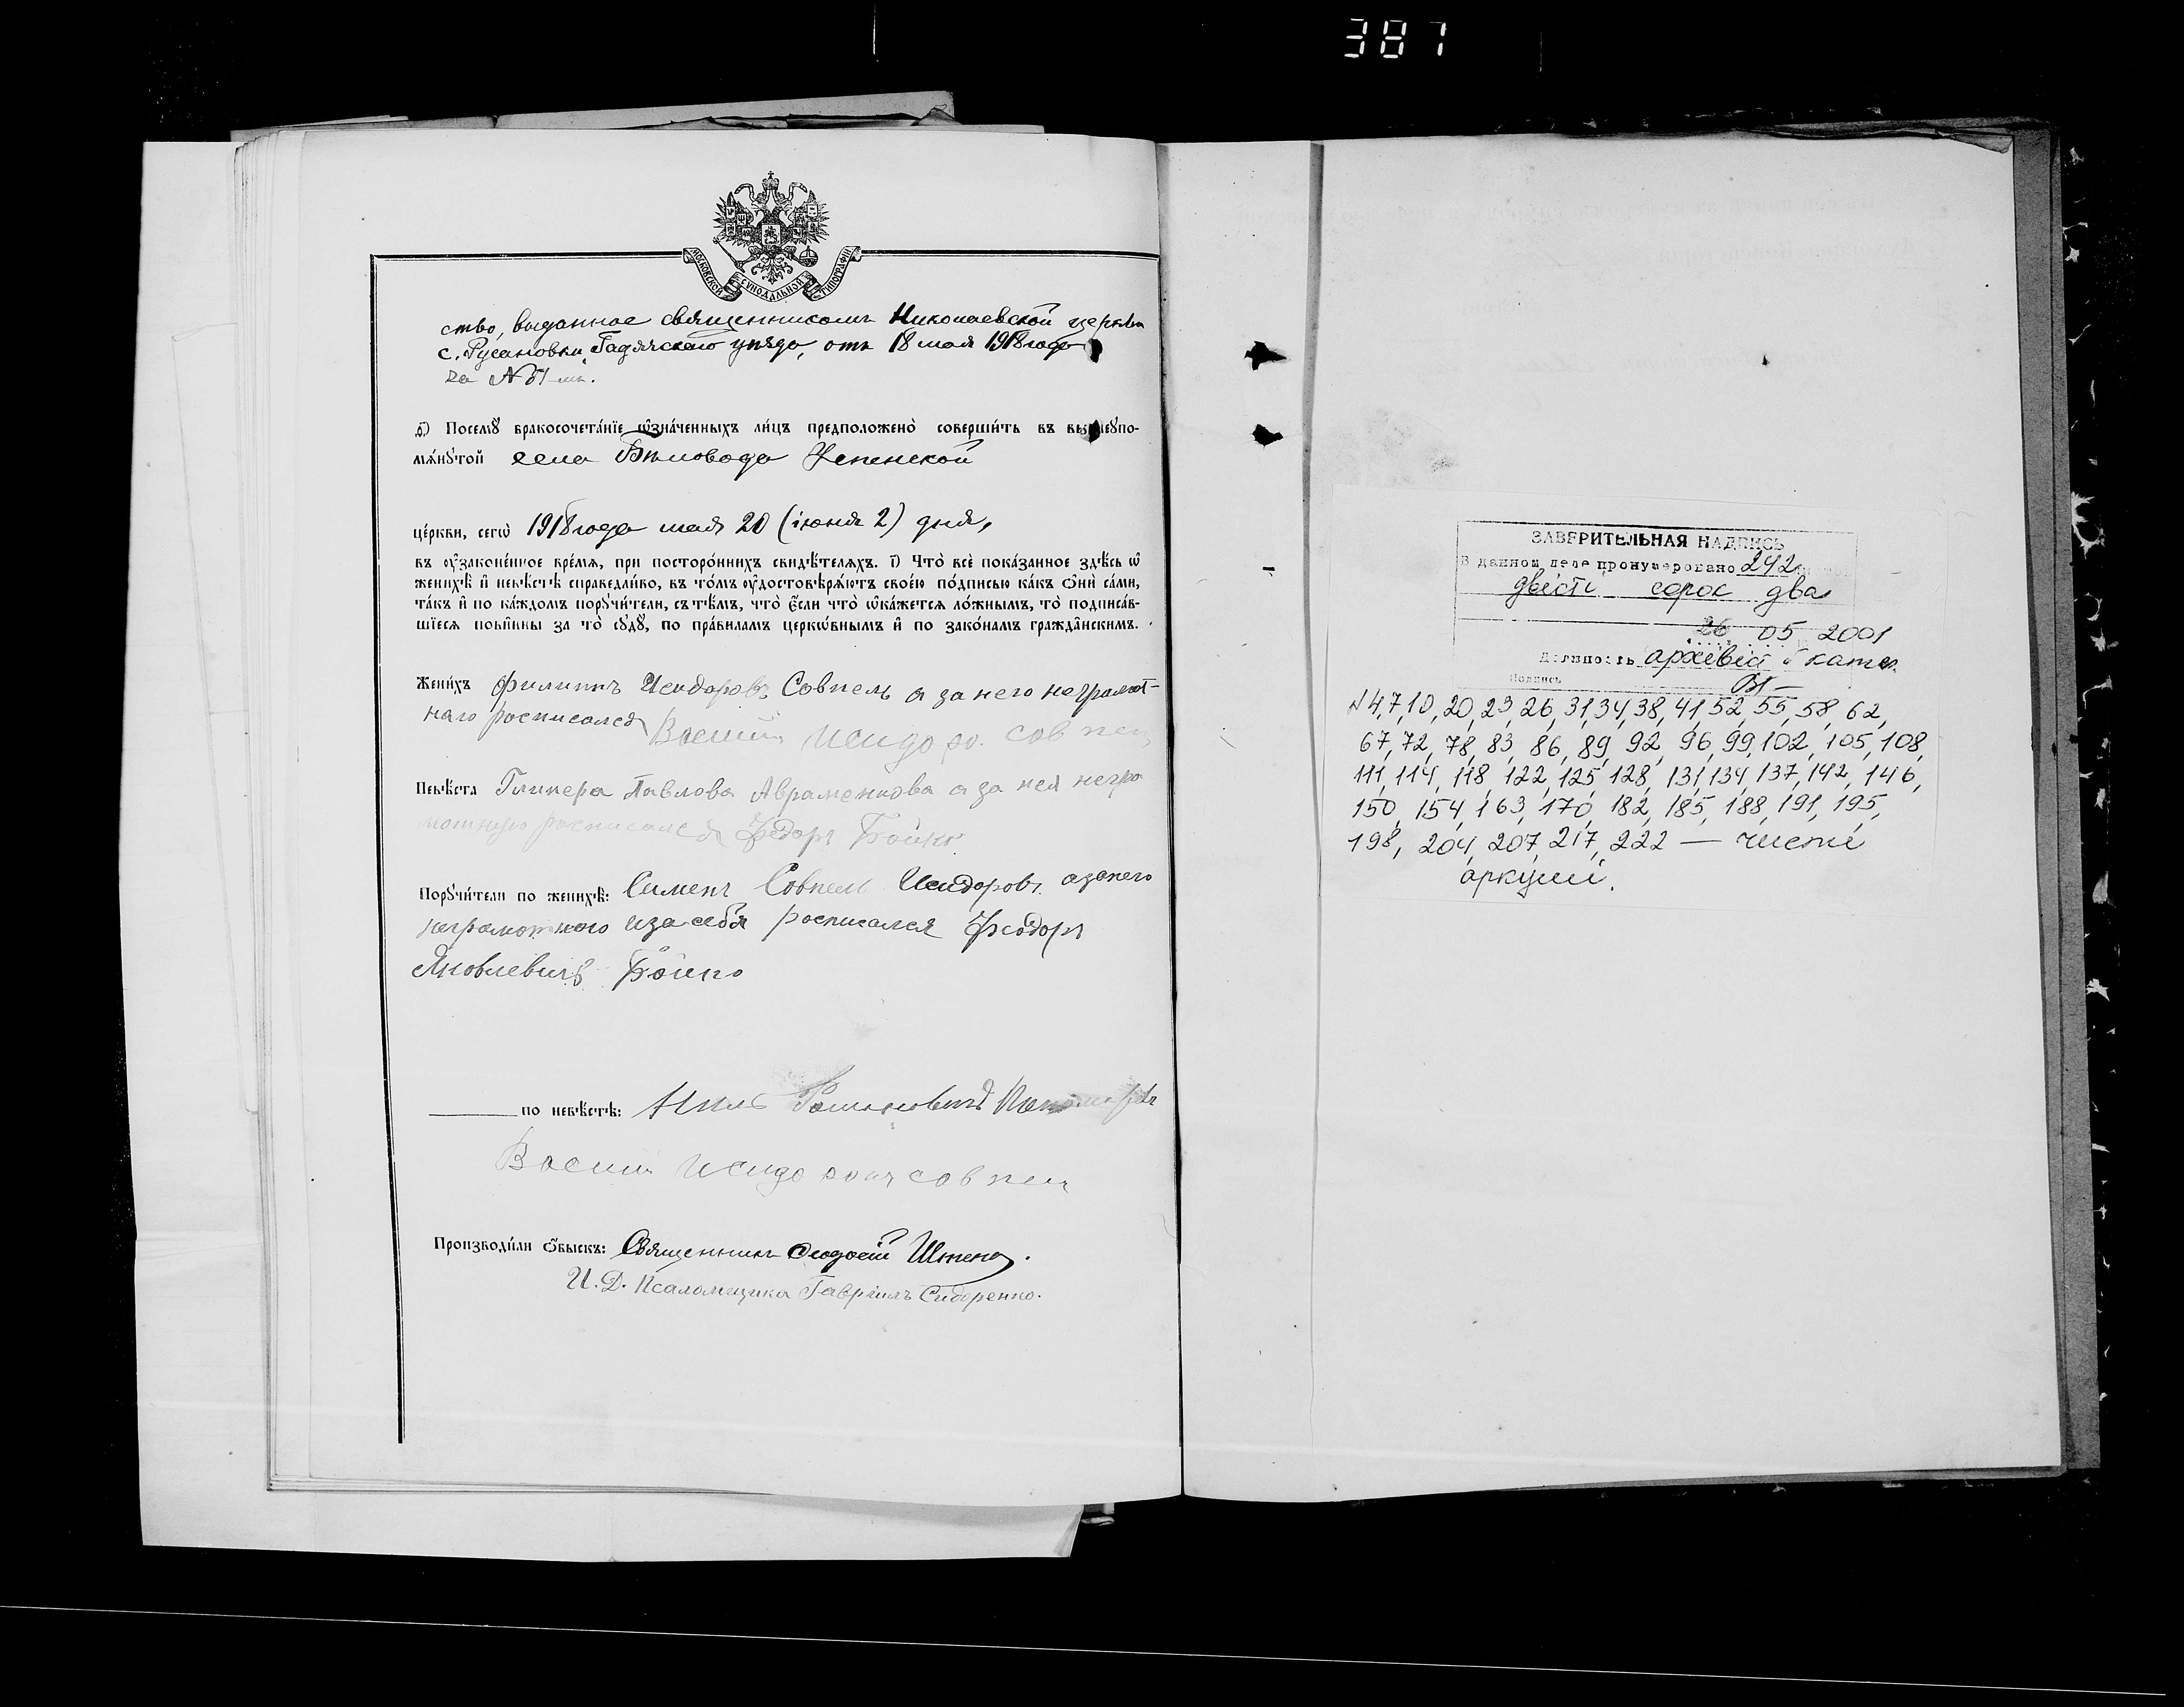 387
МОСКОВСКОЙ СѴНОДАЛЬНОЙ ТИПОГРАФІИ
ство, выданное священникомъ Николаевской церкви
с. Русановки, Гадячскаго уѣзда, отъ 18 мая 1918 года
за № 51-мъ.
Посемꙋ̀ бракосочета́нїе ѡ҆зна́ченныхъ ли́цъ предположено̀ соверши́ть въ вышеꙋпо-
мѧ́нꙋтой села Бѣловода Успенской
це́ркви, сегѡ̀ 1918 года мая 20 (іюня 2) дня,
въ ᲂу҆законе́нное вре́мѧ, при посторо́ннихъ свидѣ́телѧхъ. і҃) Что̀ всѐ пока́занное здѣ́сь ѡ҆
женихѣ̀ и҆ невѣ́стѣ справедли́во, въ то́мъ ᲂу҆достовѣрѧ́ютъ свое́ю по́дписью ка́къ ѻ҆нѝ са́ми,
та́къ и҆ по ка́ждомъ порꙋчи́тели, съ тѣ́мъ, что̀ є҆́сли что̀ ѡ҆ка́жетсѧ ло́жнымъ, то̀ подписа́в-
шїесѧ пови́нны за то̀ сꙋдꙋ̀, по пра́виламъ церкѡ́внымъ и҆ по зако́намъ гражда́нскимъ.
Жени́хъ Филиппъ Исидоровъ Совпель а за него неграмот-
наго росписался Исидоро. совпел
Невѣ́ста Гликера Павлова Авраменкова а за нея негра
мотную росписался Федоръ Бойко
Порꙋчи́тели по женихѣ̀: Сименъ Совпель Исидоровъ а за него
неграмотного и за себя росписался Феодоръ
Яковлевичъ Бойко
по невѣ́стѣ:
Исидоровъ совпел
Производи́ли ѻ҆́быскъ: Священникъ Ѳеодосій
И. Д. Псаломщика Гавріилъ Сидоренко.
ЗАВЕРИТЕЛЬНАЯ НАДПИСЬ
В данном деле пронумеровано 242
двісті сорок два
26 05 2001
Должность архівіст катег.
Подпись
№ 4, 7, 10, 20, 23, 26, 31, 34, 38, 41, 52, 55, 58, 62,
67, 72, 78, 83, 86, 89, 92, 96, 99, 102, 105, 108,
111, 114, 118, 122, 125, 128, 131, 134, 137, 142, 146,
150, 154, 163, 170, 182, 185, 188, 191, 195,
198, 204, 207, 217, 222 — чисті
аркуші.